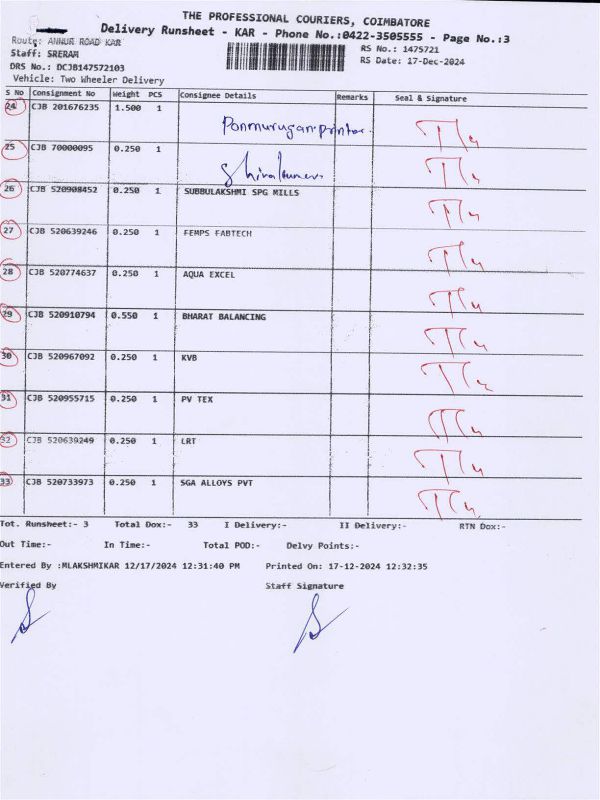 THE PROFESSIONAL COURIERS, COIMBATORE
Delivery Runsheet - KAR - Phone No.:0422-3505555 - Page No.:3
Route: ANNUR ROAD KAR
RS No.: 1475721
Staff: SRERAM
RS Date: 17-Dec-2024
DRS No.: DCJB147572103
Vehicle: Two Wheeler Delivery
S No Consignment No Weight PCS Consignee Details Remarks Seal & Signature
24 CJB 201676235 1.500 1
Ponmurugan printer
25 CJB 70000095 0.250 1
26 CJB 520908452 0.250 1 SUBBULAKSHMI SPG MILLS
27 CJB 520639246 0.250 1 FEMPS FABTECH
28 CJB 520774637 0.250 1 AQUA EXCEL
29 CJB 520910794 0.550 1 BHARAT BALANCING
30 CJB 520967092 0.250 1 KVB
31 CJB 520955715 0.250 1 PV TEX
32 CJB 520639249 0.250 1 LRT
33 CJB 520733973 0.250 1 SGA ALLOYS PVT
Tot. Runsheet:- 3 Total Dox:- 33 I Delivery:- II Delivery:- RTN Dox:-
Out Time:- In Time:- Total POD:- Delvy Points:-
Entered By :MLAKSHMIKAR 12/17/2024 12:31:40 PM Printed On: 17-12-2024 12:32:35
Verified By Staff Signature